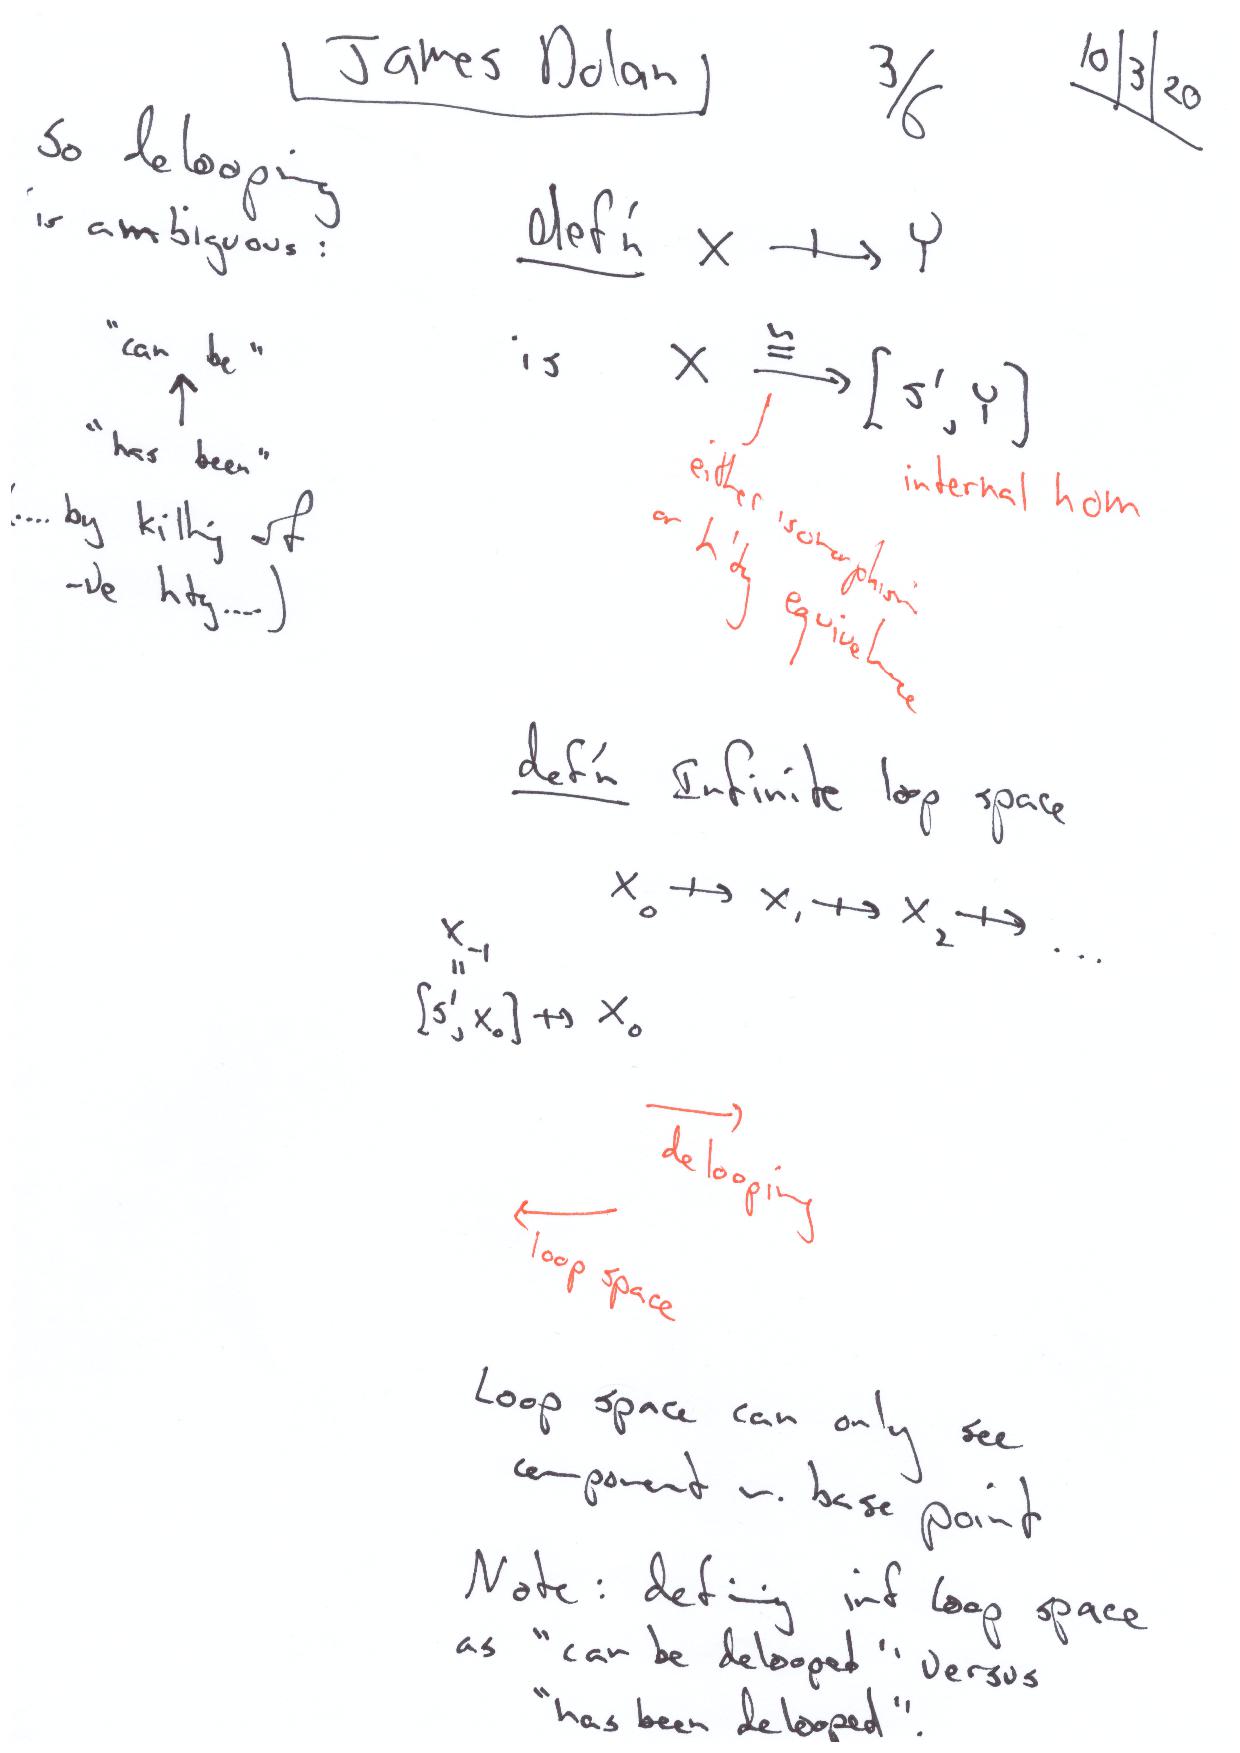 James Dolan 3/6 10/3/20
So delooping
is ambiguous:
"can be"
↑
"has been"
(.... by killing off
-ve hty....)
def'n X ⇸ Y
is X ≅→ [S¹, Y]
either isomorphism
or h'ty equivalence
internal hom
def'n Infinite loop space
X₀ ⇸ X₁ ⇸ X₂ ⇸ ...
X₋₁
=
[S¹, X₀] ⇸ X₀
→
delooping
←
loop space
Loop space can only see
component w. base point
Note: defining inf loop space
as "can be delooped" versus
"has been delooped".